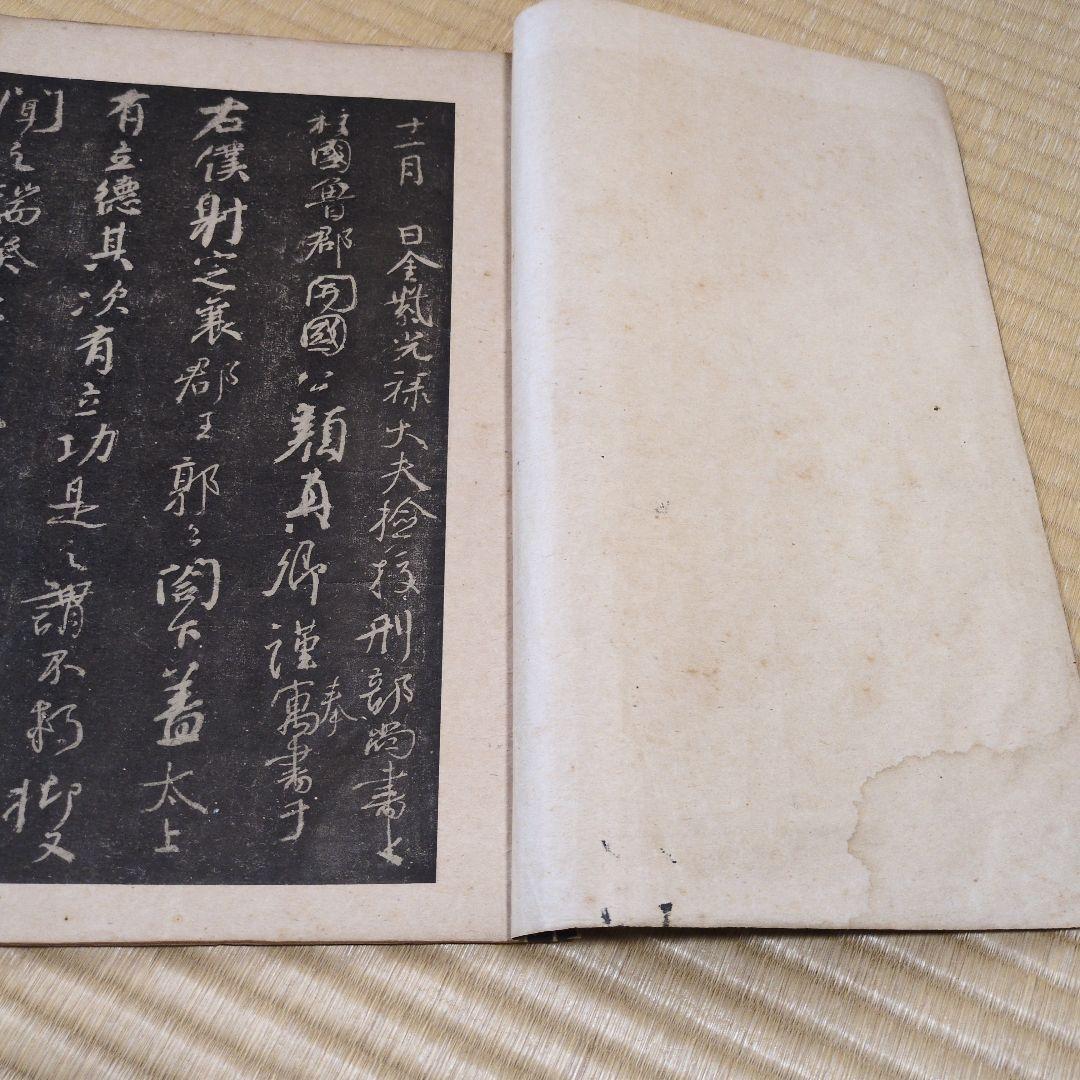 十一月 日金紫光祿大夫檢挍刑部尚書上
柱國魯郡開國公顏真卿謹奉寓書于
右僕射定襄郡王郭公閤下蓋太上
有立德其次有立功是之謂不朽抑又
聞之端